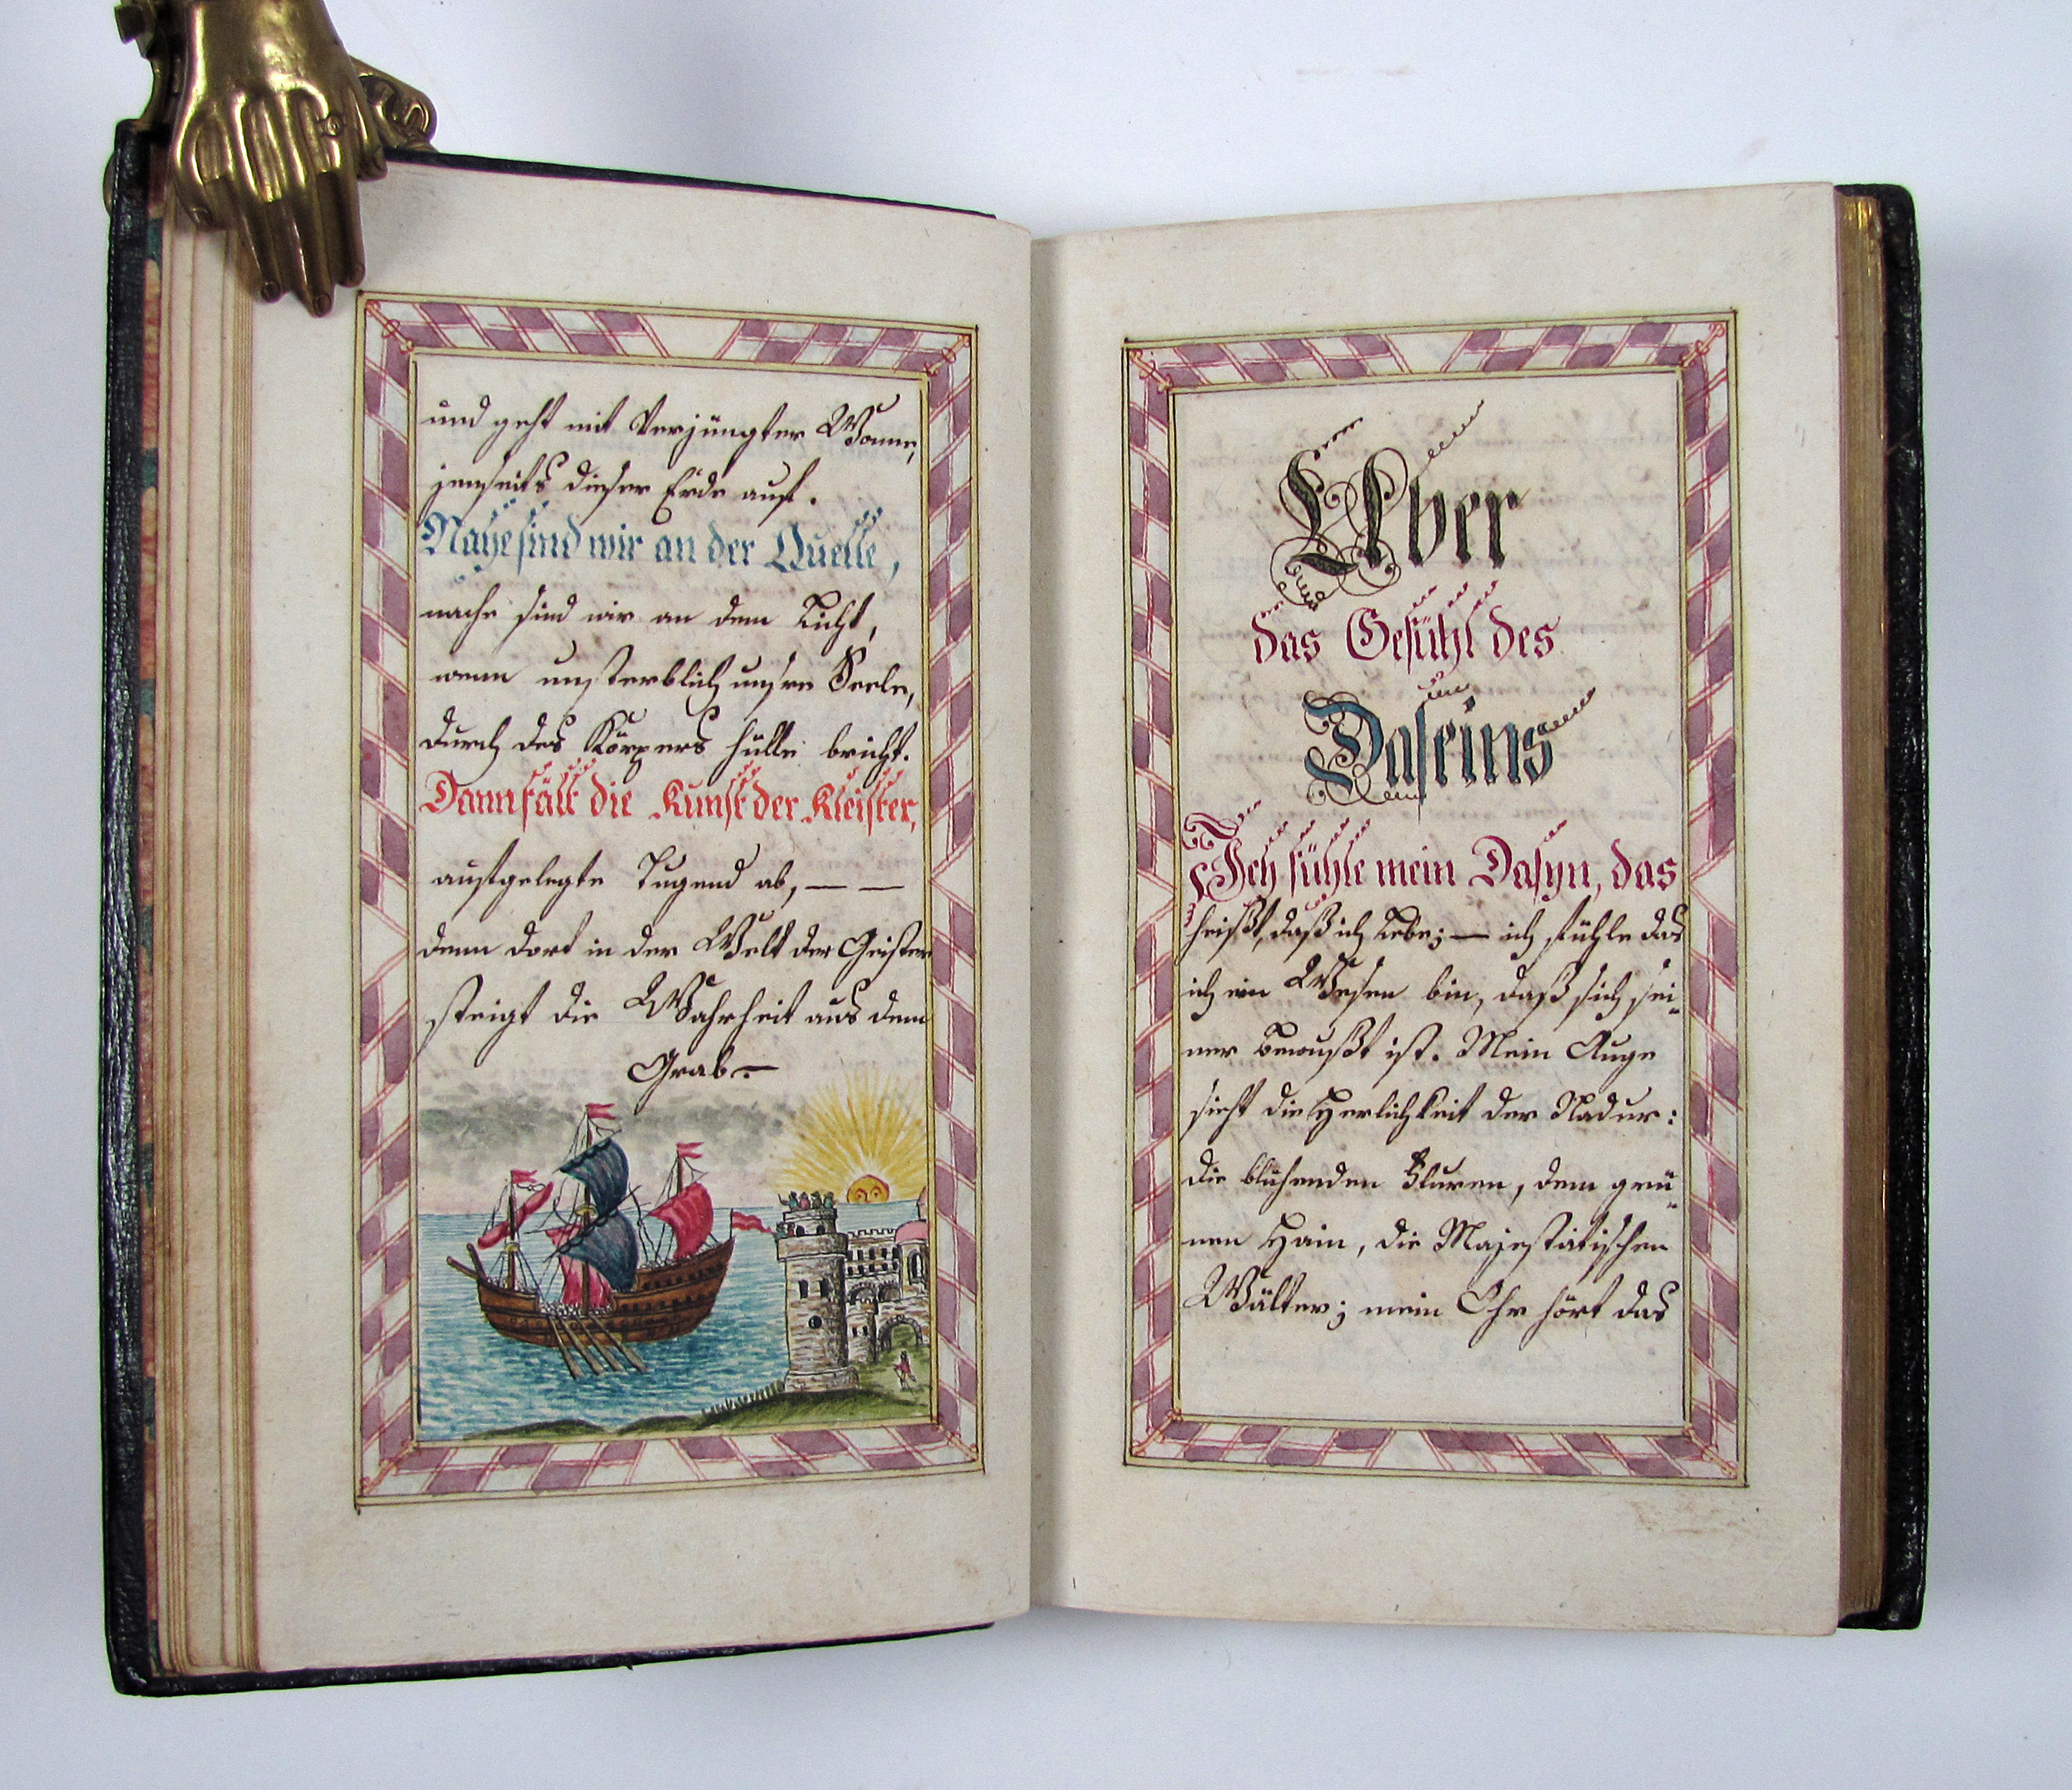 und geht mit Verjüngter Wonne,
jenseits dieser Erde auf.
Nahe sind wir an der Quelle,
nache sind wir an dem Licht,
wenn unsterblich unsre Seele,
durch des Körpers hülle bricht.
Dann fält die Kunst der Kleister,
aufgelegte Tugend ab, — —
denn dort in der Welt der Geister
steigt die Wahrheit aus dem
Grab. —
Über
das Gefühl des
Daseins
Ich fühle mein Dasyn, das
heißt, daß ich Lebe; — ich fühle das
ich ein Wesen bin, daß sich sei-
ner bewußt ist. Mein Auge
sieht die Herlichkeit der Nadur:
die blühenden Fluren, dem grü-
nen Hain, die Majestätischen
Wälter; mein Ohr hört das